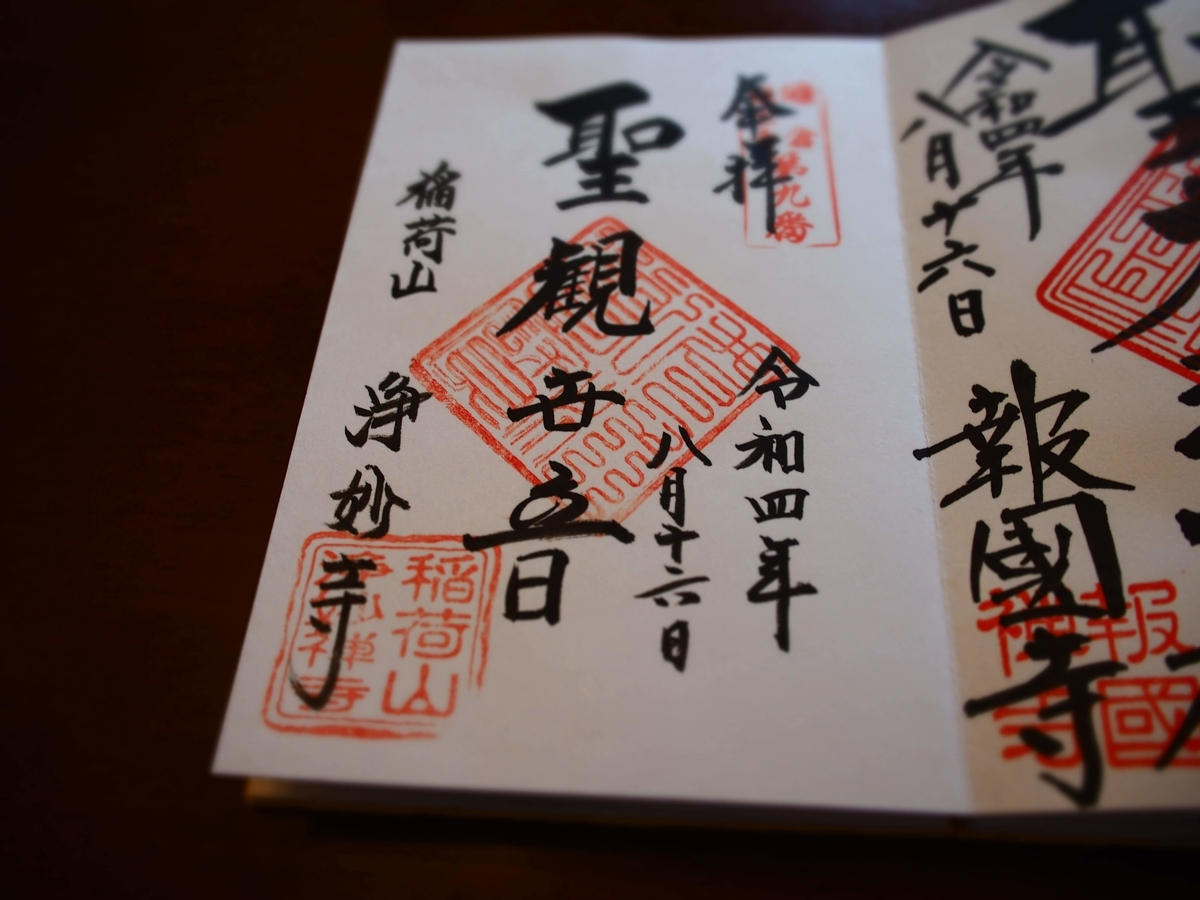 令和四年
八月十六日
報國寺
報國
禅寺
奉拝
鎌倉第九番
令和四年
八月十六日
聖観世音
稲荷山
浄妙寺
稲荷山
浄妙禅寺